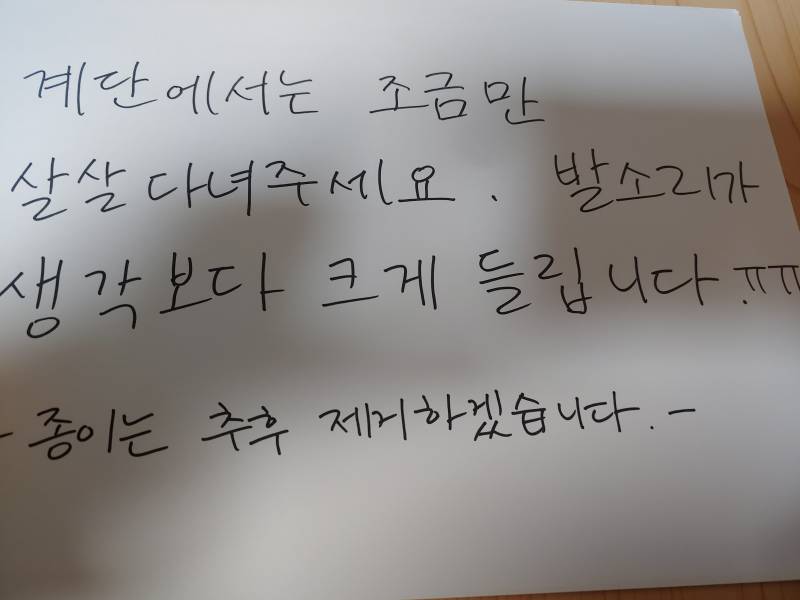 계단에서는 조금만
살살 다녀주세요. 발소리가
생각보다 크게 들립니다.ㅠㅠ
- 종이는 추후 제거하겠습니다. -